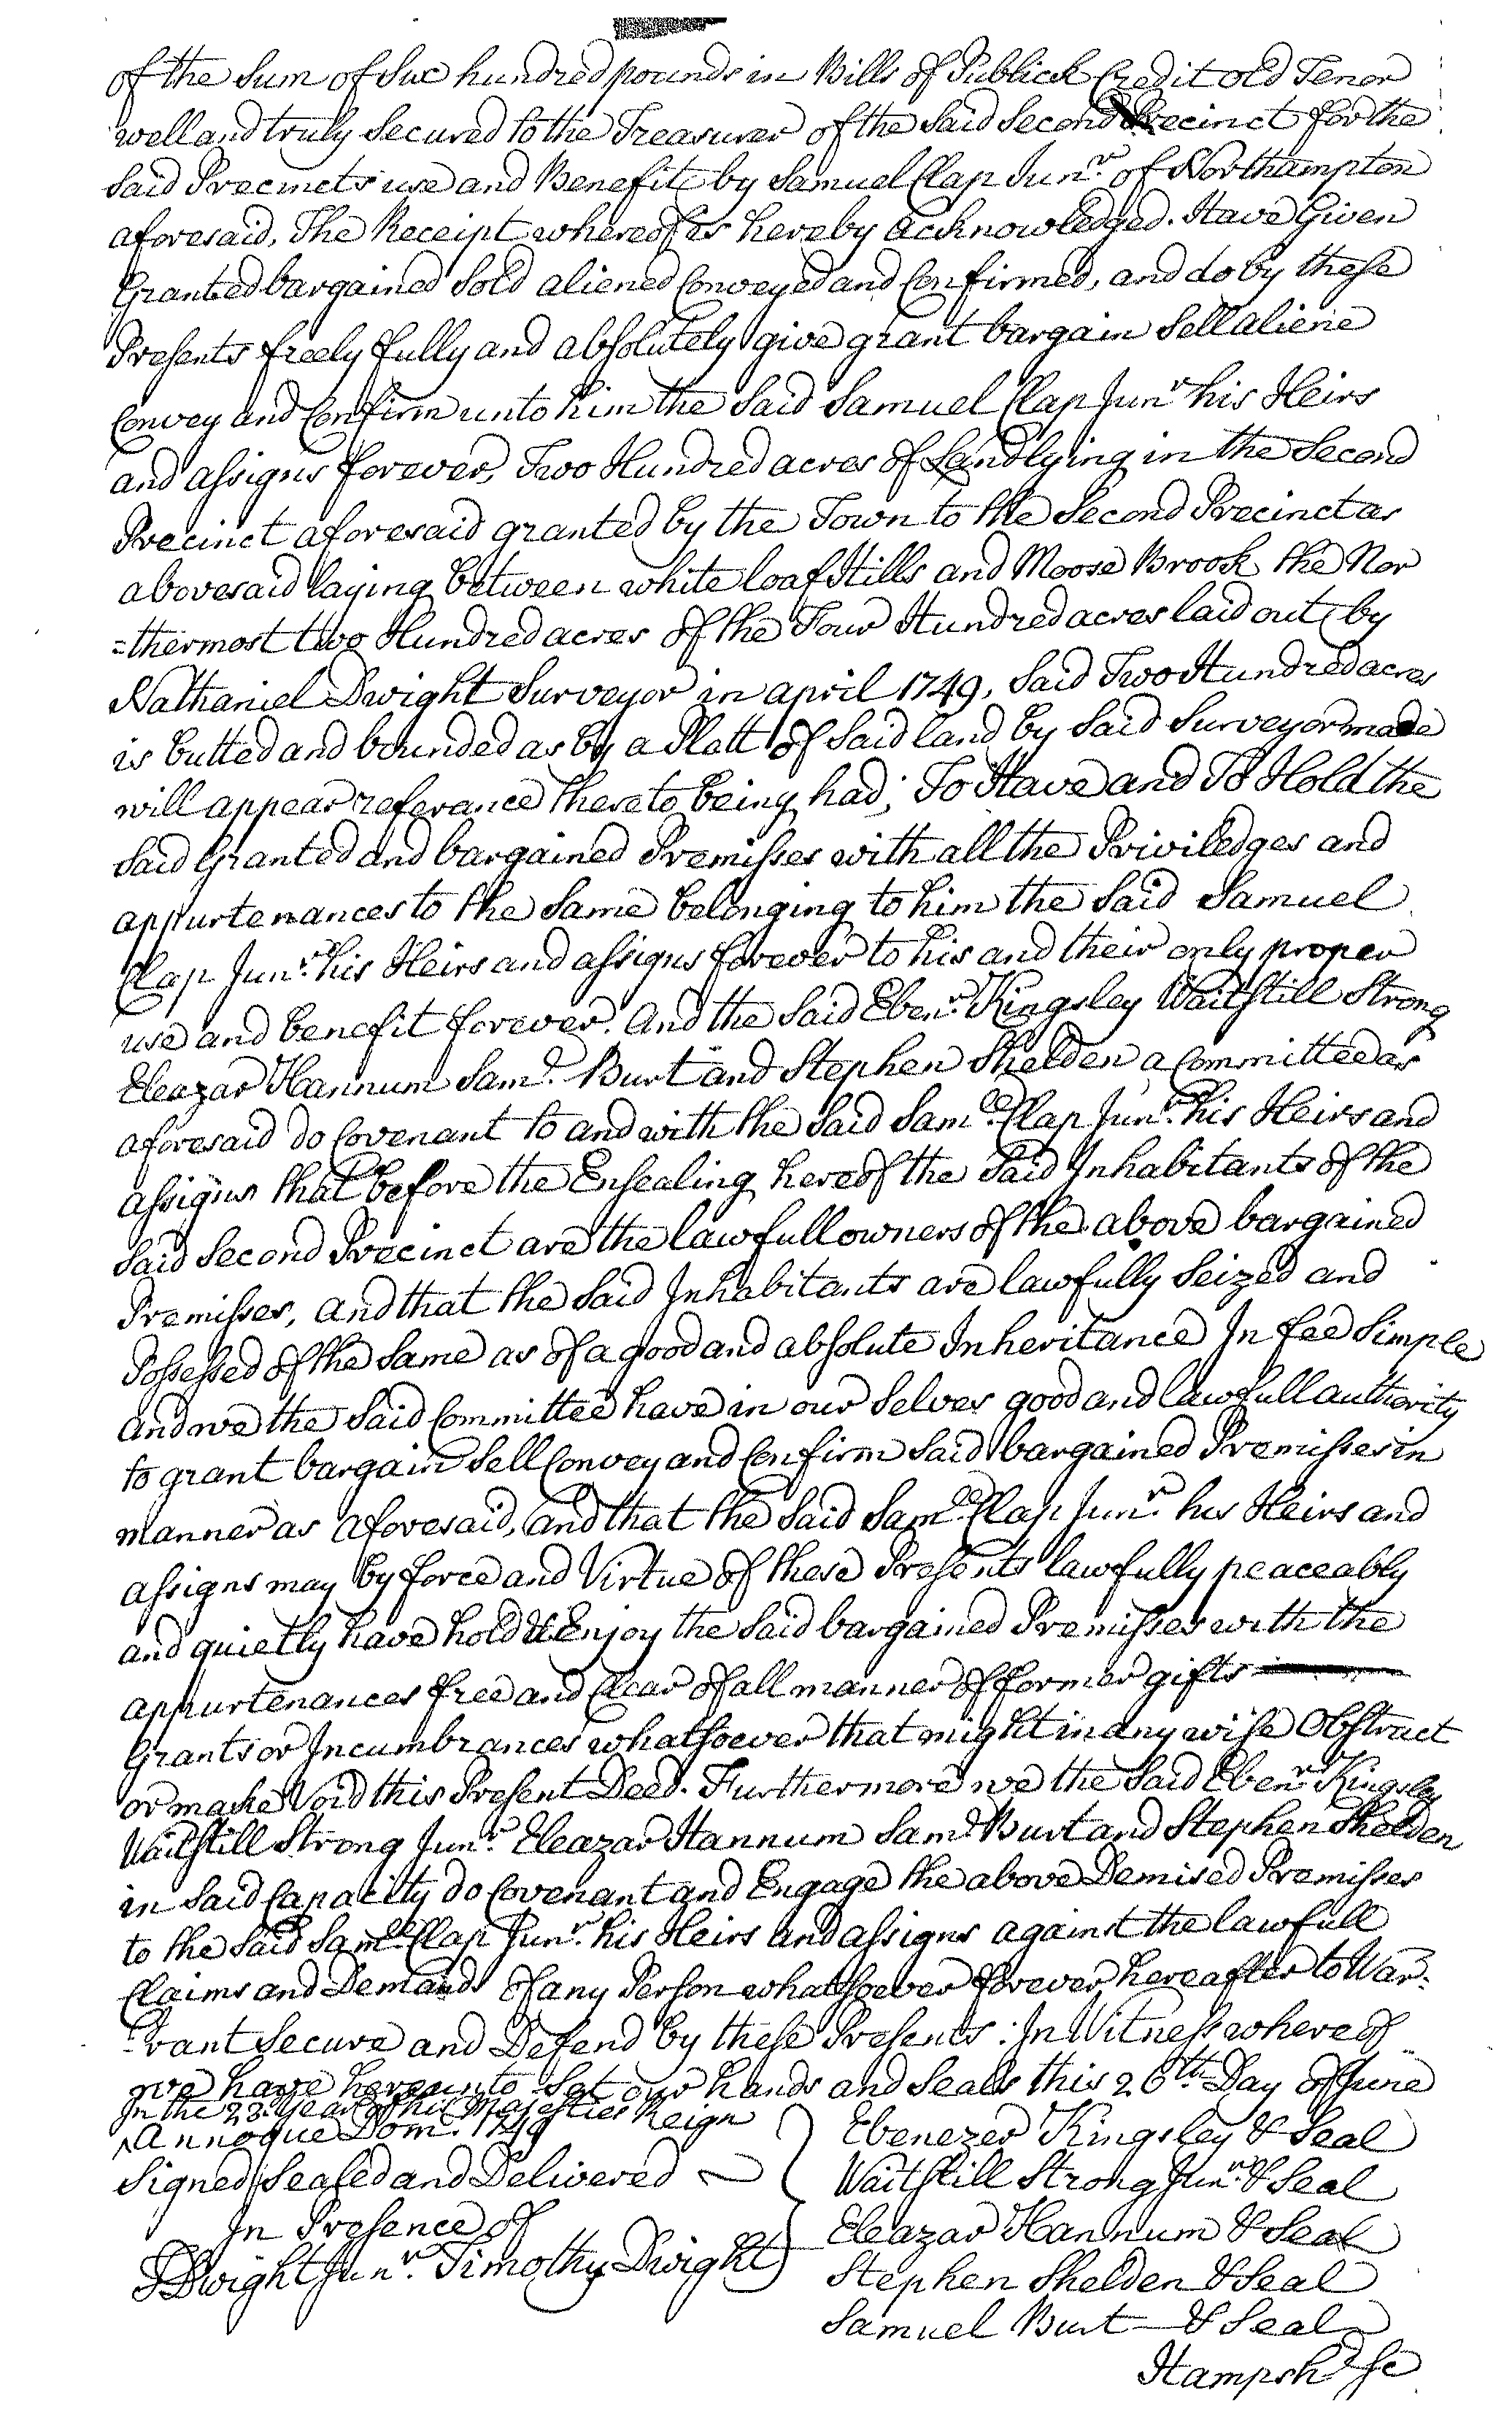 of the Sum of Six hundred pounds in Bills of Publick Credit old Tenor
well and truly Secured to the Treasurer of the Said Second Precinct for the
Said Precincts use and Benefit by Samuel Clap Junr. of Northampton
aforesaid, The Receipt whereof is hereby Acknowledged. Have Given
Granted bargained Sold aliened Conveyed and Confirmed, and do by these
Presents freely fully and absolutely give grant bargain Sell aliene
Convey and Confirm unto him the Said Samuel Clap Junr his Heirs
and assigns forever, Two Hundred acres of Land lying in the Second
Precinct aforesaid granted by the Town to the Second Precinct as
abovesaid laying between white loaf Hills and Moose Brook the Nor
=thermost two Hundred acres of the Four Hundred acres laid out by
Nathaniel Dwight Surveyor in april 1749, Said Two Hundred acres
is butted and bounded as by a Platt of Said land by Said Surveyor made
will appear referance thereto being had; To Have and To Hold the
Said Granted and bargained Premisses with all the Priviledges and
appurtenances to the Same belonging to him the Said Samuel
Clap Junr. his Heirs and assigns forever to his and their only proper
use and benefit forever. And the Said Ebenr. Kingsley Waitstill Strong
Eleazar Hannum Saml. Burt and Stephen Shelden a Committee as
aforesaid do Covenant to and with the Said Saml. Clap Junr. his Heirs and
assigns that before the Ensealing hereof the Said Inhabitants of the
Said Second Precinct are the lawfull owners of the above bargained
Premisses, and that the Said Inhabitants are lawfully Seized and
Possessed of the Same as of a good and absolute Inheritance In fee Simple
and we the Said Committee have in our Selves good and lawfull authority
to grant bargain Sell Convey and Confirm Said bargained Premisses in
manner as aforesaid, and that the Said Saml. Clap Junr. his Heirs and
assigns may by force and Virtue of these Presents lawfully peaceably
and quietly have hold & Enjoy the Said bargained Premisses with the
appurtenances free and Clear of all manner of former gifts
Grants or Incumbrances whatsoever that might in any wise Obstract
or make Void this Present Deed. Furthermore we the Said Ebenr. Kingsley
Waitstill Strong Junr. Eleazar Hannum Saml. Burt and Stephen Shelden
in Said Capacity do Covenant and Engage the above Demised Premisses
to the Said Saml. Clap Junr. his Heirs and assigns against the lawfull
Claims and Demands of any Person whatsoever forever hereafter to War-
-rant Secure and Defend by these Presents: In Witness whereof
we have hereunto Set our hands and Seals this 26th. Day of June
In the 23. Year of his Majesties Reign
^Annoque Dom. 1749
Signed Sealed and Delivered
In Presence of
T Dwight Junr. Timothy Dwight
Ebenezer Kingsley & Seal
Waitstill Strong Junr. & Seal
Eleazar Hannum & Seal
Stephen Shelden & Seal
Samuel Burt & Seal
Hampshr. sc